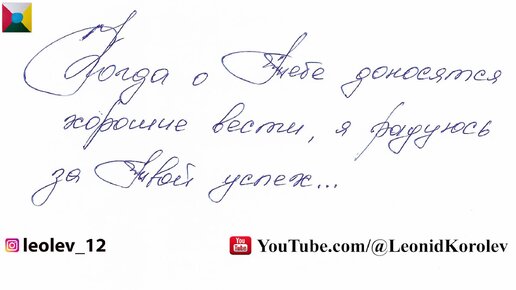 Когда о Тебе доносятся
хорошие вести, я радуюсь
за Твой успех...
leolev_12
YouTube.com/@LeonidKorolev